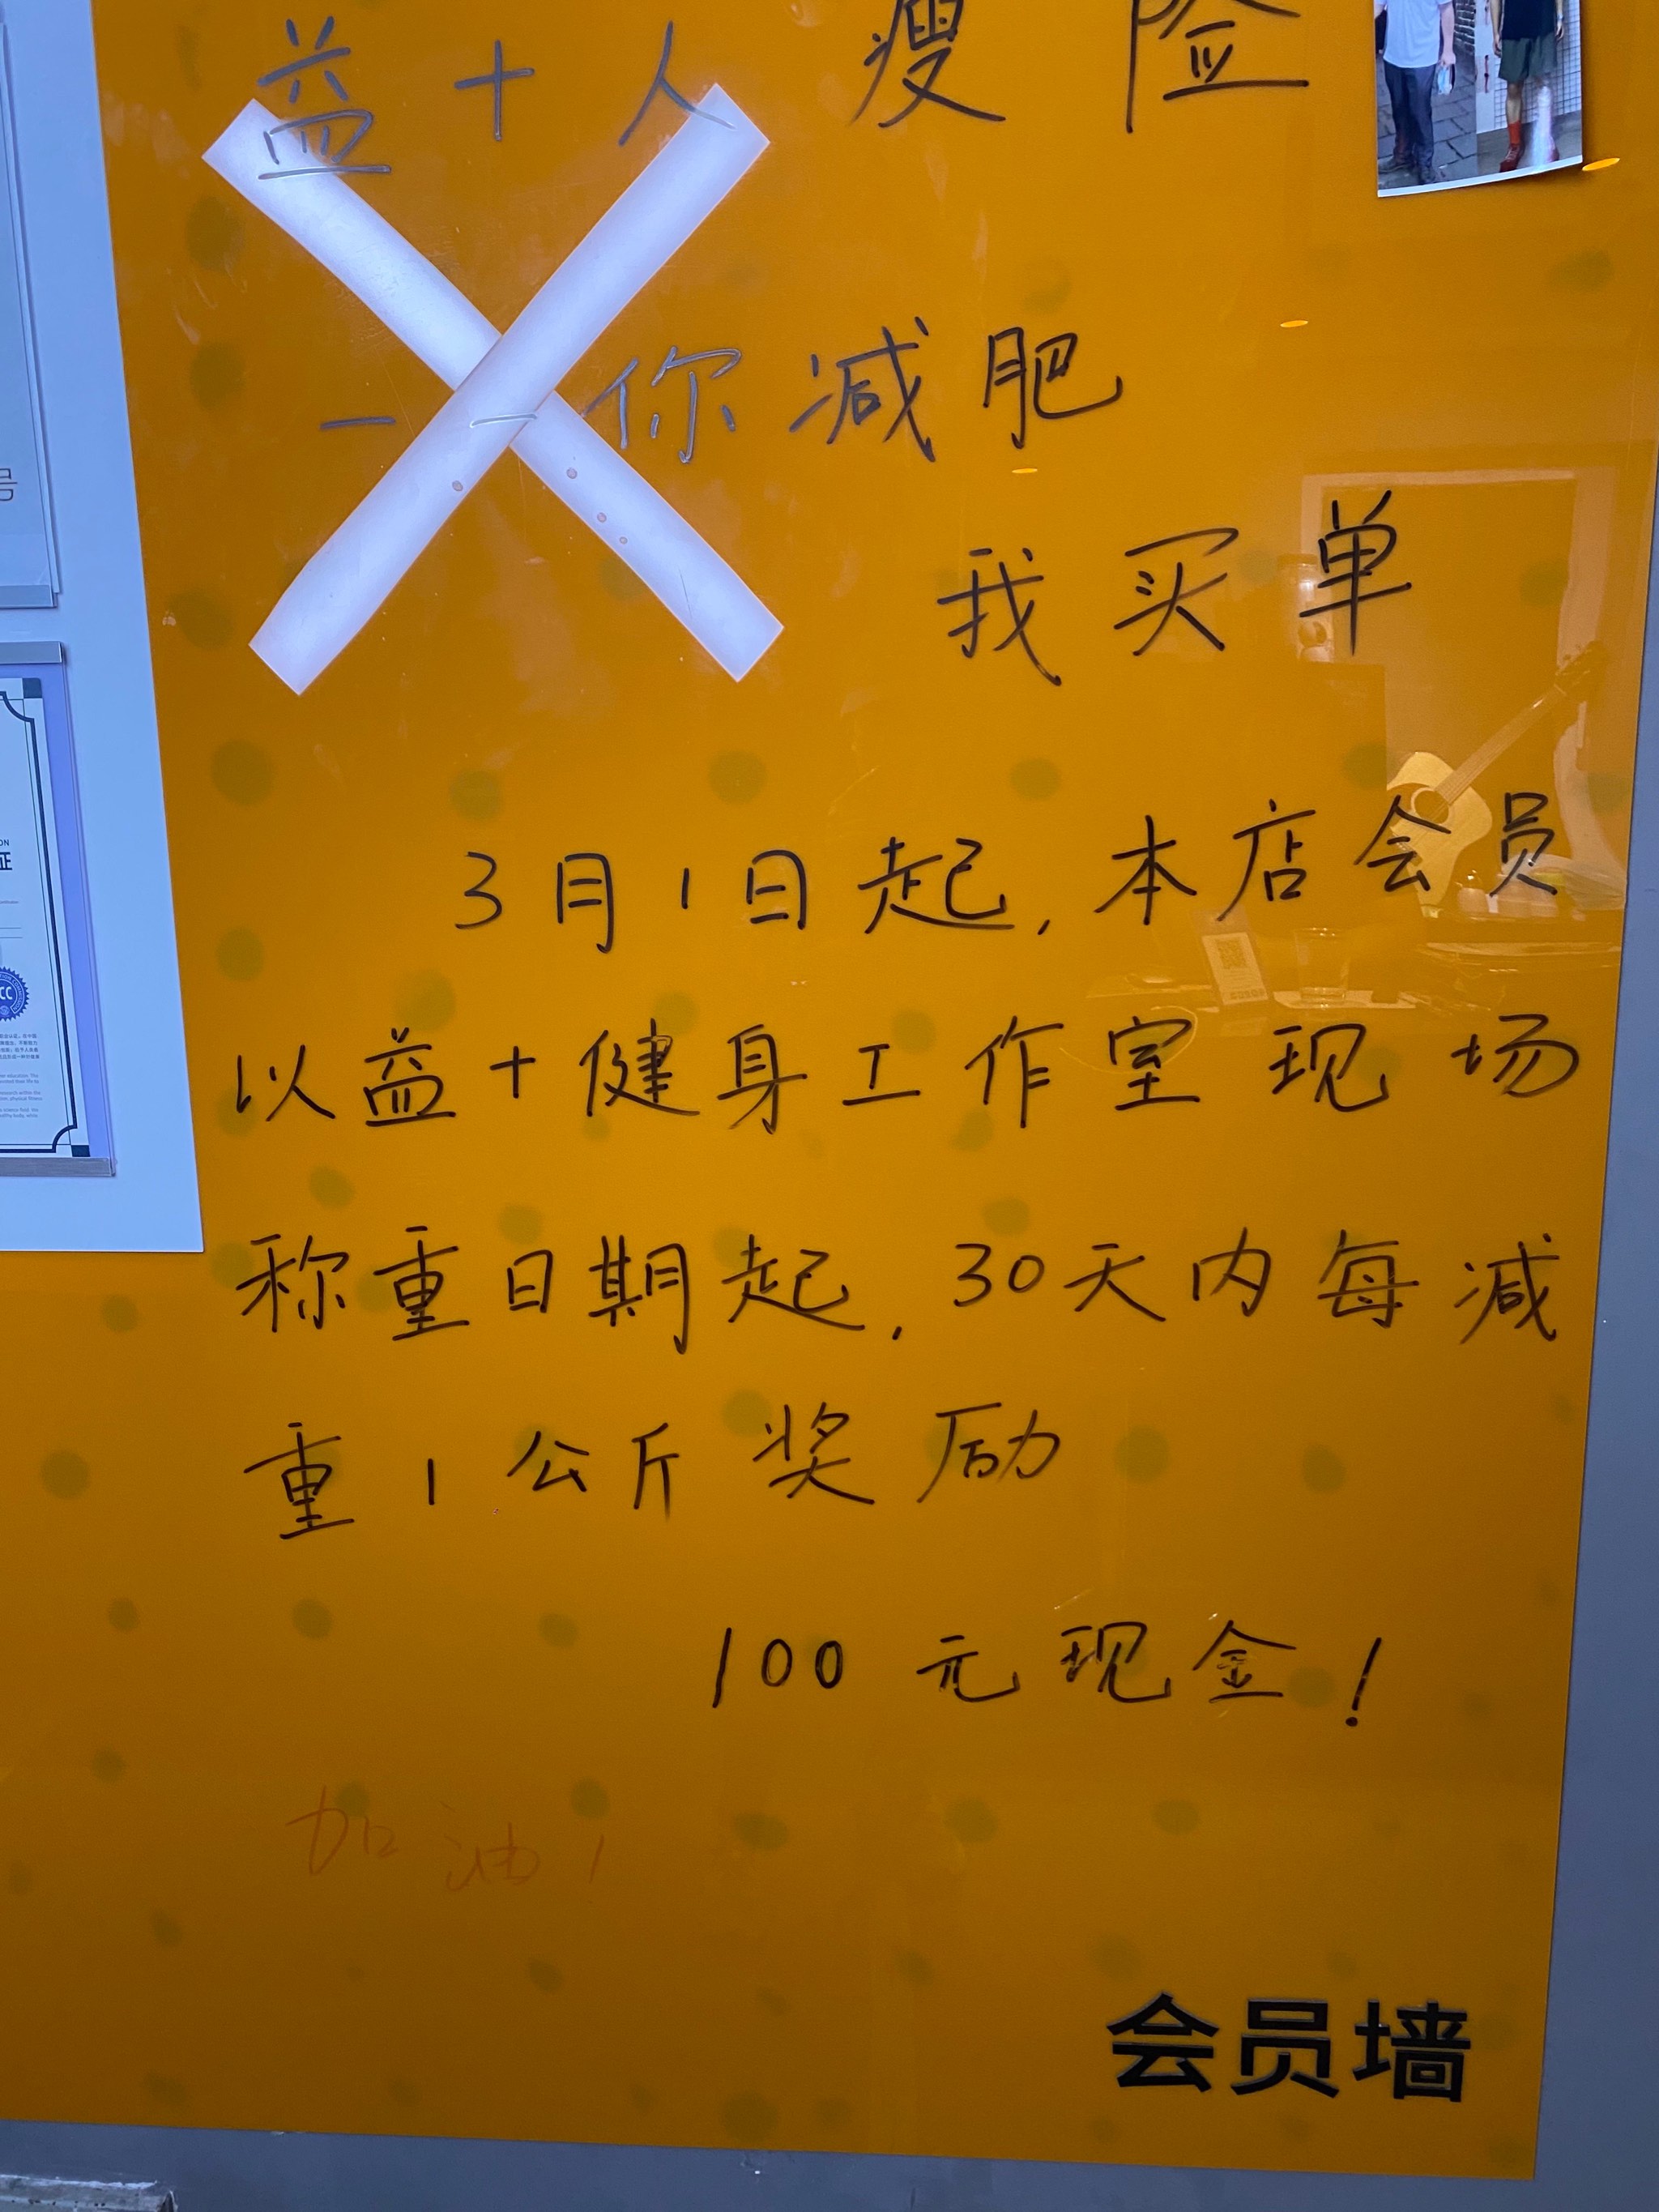 益十人 瘦险
——你减肥
我买单
3月1日起,本店会员
以益+健身工作室现场
称重日期起,30天内每减
重1公斤奖励
100元现金!
加油!
会员墙
号
证